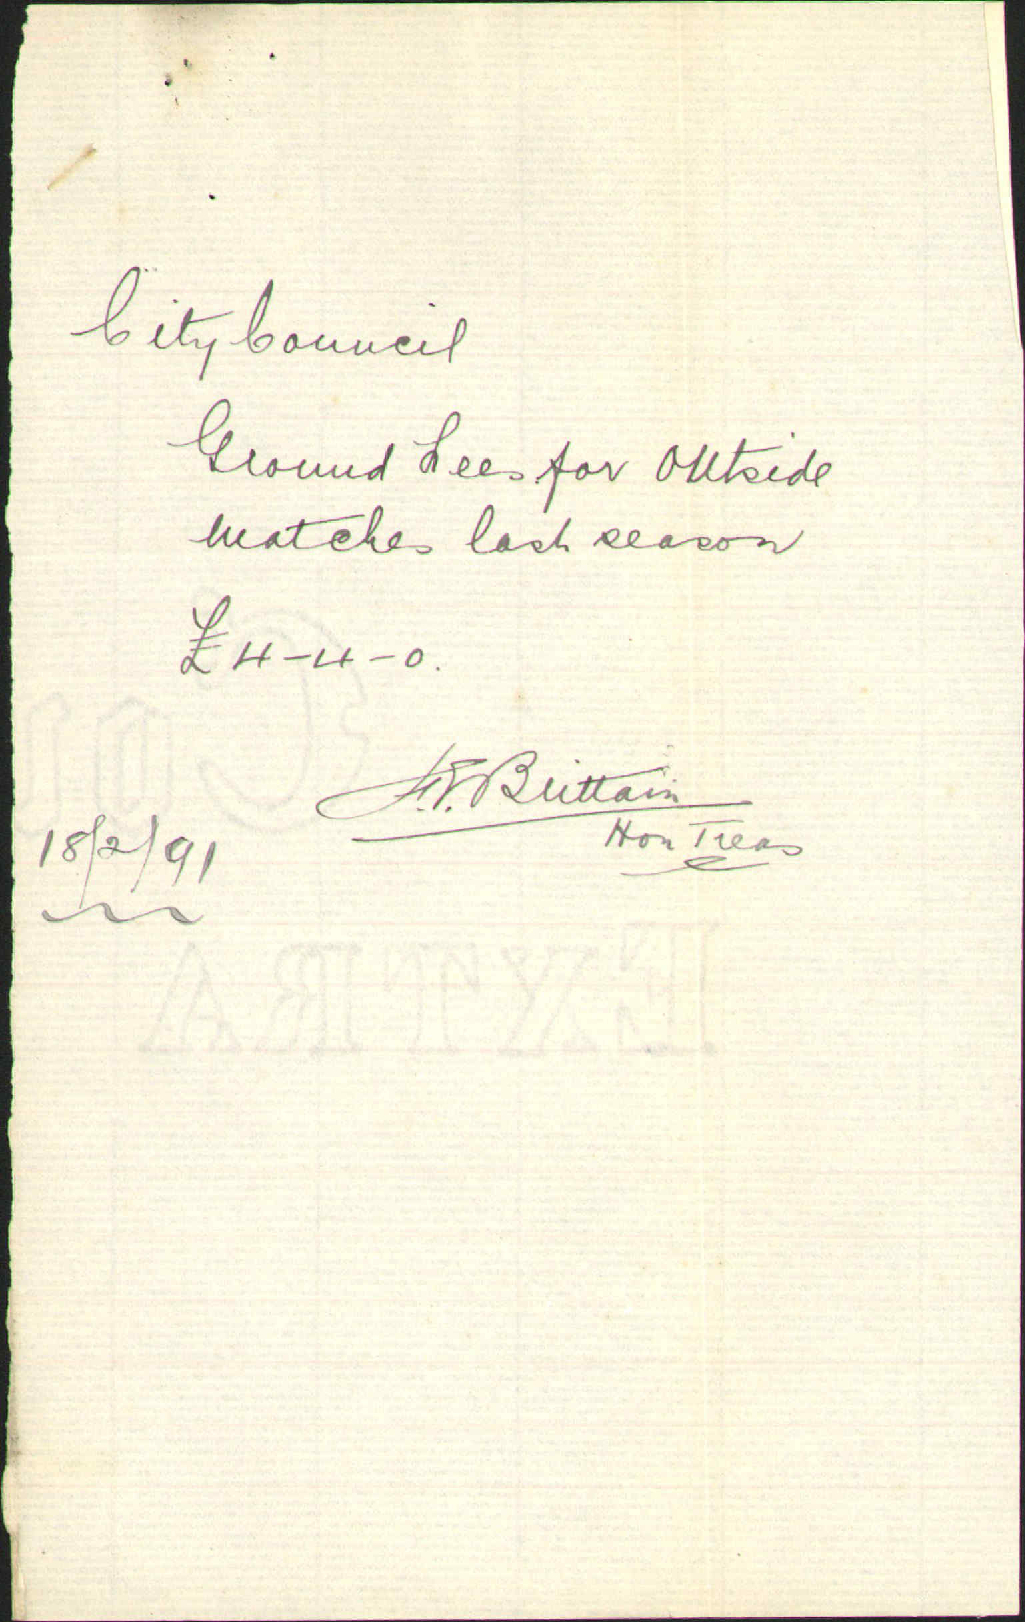 City Council
Ground Fees for Outside
matches last season
£4-4-0.
F.E. Brittain
Hon Treas
18/2/91
EXTRA